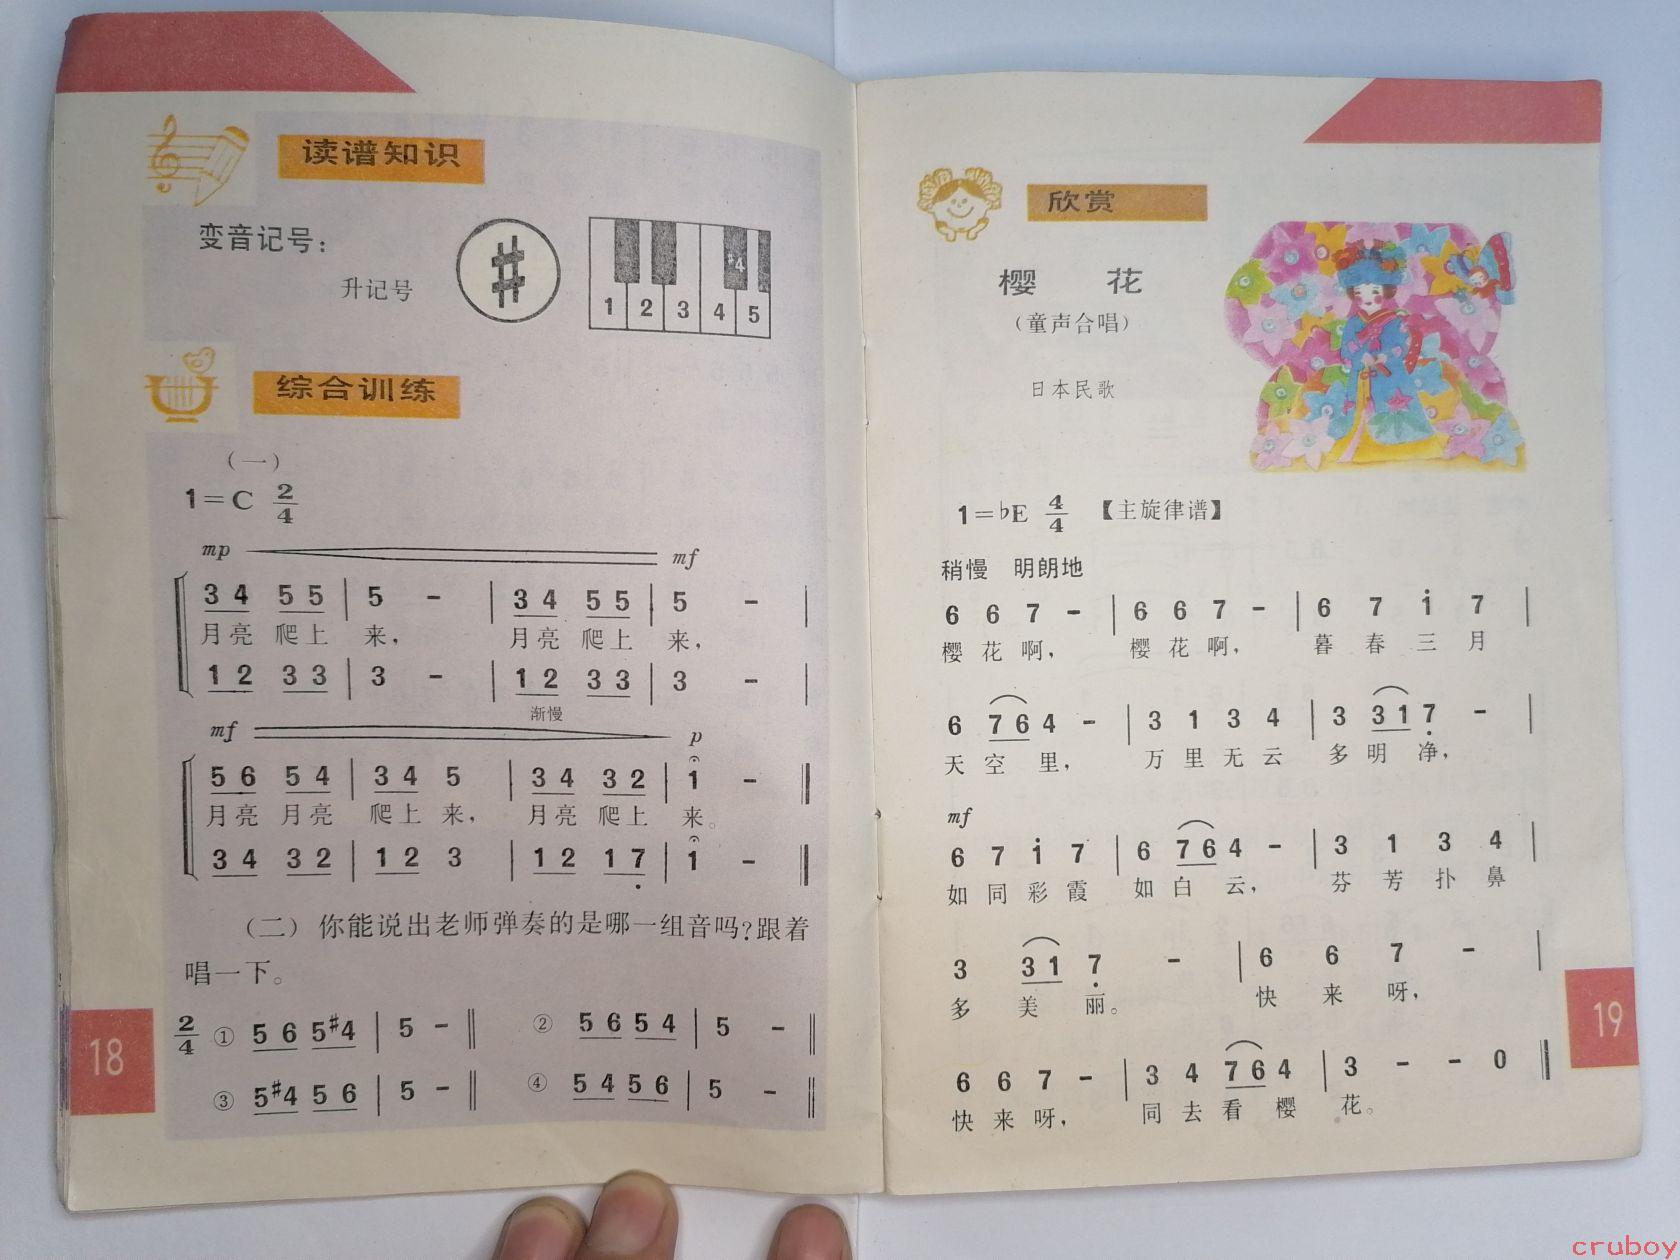 读谱知识
变音记号：
升记号
#
#4
1 2 3 4 5
综合训练
（一）
1=C 2/4
mp mf
3 4 5 5 | 5 - | 3 4 5 5 | 5 - |
月亮 爬上 来， 月亮 爬上 来，
1 2 3 3 | 3 - | 1 2 3 3 | 3 - |
渐慢
mf p
5 6 5 4 | 3 4 5 | 3 4 3 2 | 1 - ‖
月亮 月亮 爬上 来， 月亮 爬上 来。
3 4 3 2 | 1 2 3 | 1 2 1 7̣ | 1 - ‖
（二）你能说出老师弹奏的是哪一组音吗？跟着
唱一下。
2/4 ① 5 6 5 #4 | 5 - ‖ ② 5 6 5 4 | 5 - ‖
③ 5 #4 5 6 | 5 - ‖ ④ 5 4 5 6 | 5 - ‖
18
欣赏
樱 花
（童声合唱）
日本民歌
1=♭E 4/4 【主旋律谱】
稍慢 明朗地
6 6 7 - | 6 6 7 - | 6 7 i 7 |
樱 花 啊， 樱 花 啊， 暮 春 三 月
6 7 6 4 - | 3 1 3 4 | 3 3 1 7̣ - |
天 空 里， 万 里 无 云 多 明 净，
mf
6 7 i 7 | 6 7 6 4 - | 3 1 3 4 |
如 同 彩 霞 如 白 云， 芬 芳 扑 鼻
3 3 1 7̣ - | 6 6 7 - |
多 美 丽。 快 来 呀，
6 6 7 - | 3 4 7 6 4 | 3 - - 0 ‖
快 来 呀， 同 去 看 樱 花。
19
cruboy